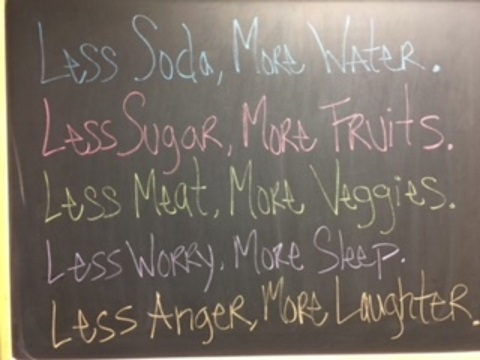 Less Soda, More Water.
Less Sugar, More Fruits.
Less Meat, More Veggies.
Less Worry, More Sleep.
Less Anger, More Laughter.